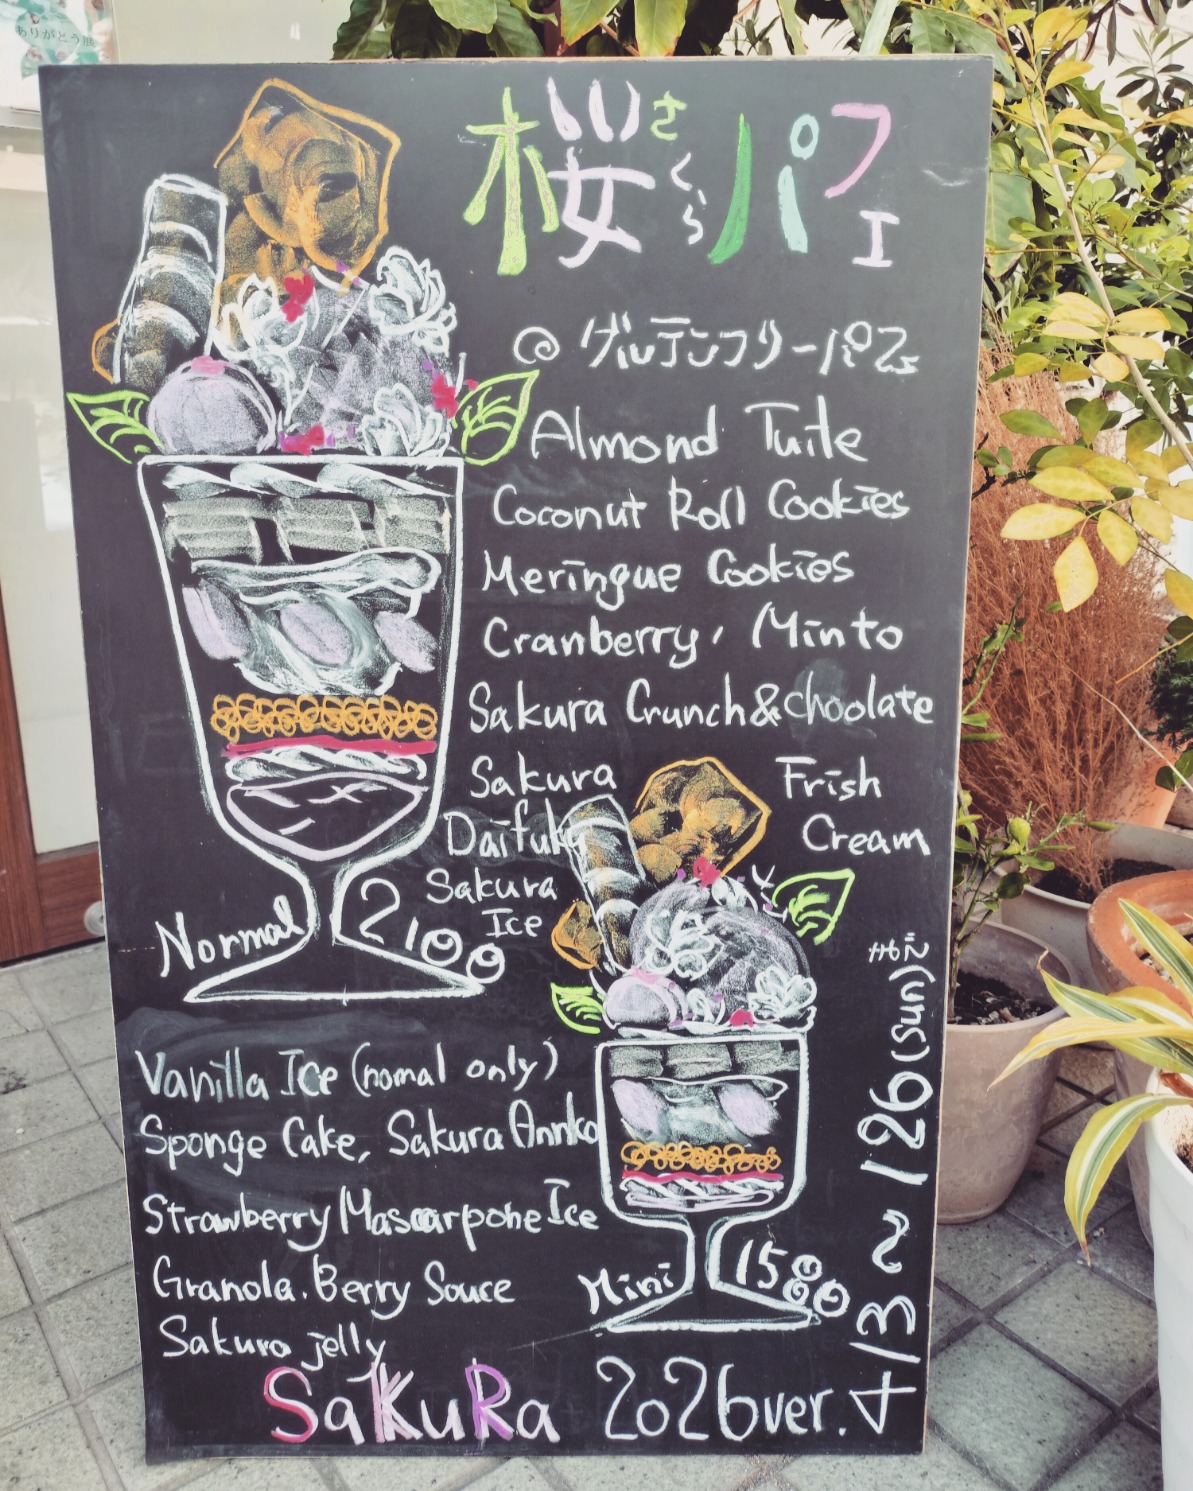 ありがとう展
桜 さくら パフェ
@ グルテンフリーパフェ
Almond Tuile
Coconut Roll Cookies
Meringue Cookies
Cranberry, Minto
Sakura Crunch&choolate
Sakura
Daifuku
Sakura
Ice
Frish
Cream
Normal 2100
Vanilla Ice (nomal only)
Sponge Cake, Sakura Annko
Strawberry Mascarpone Ice
Granola. Berry Sauce
Sakura jelly
Mini 1580
SaKuRa 2026ver.
(Sun)